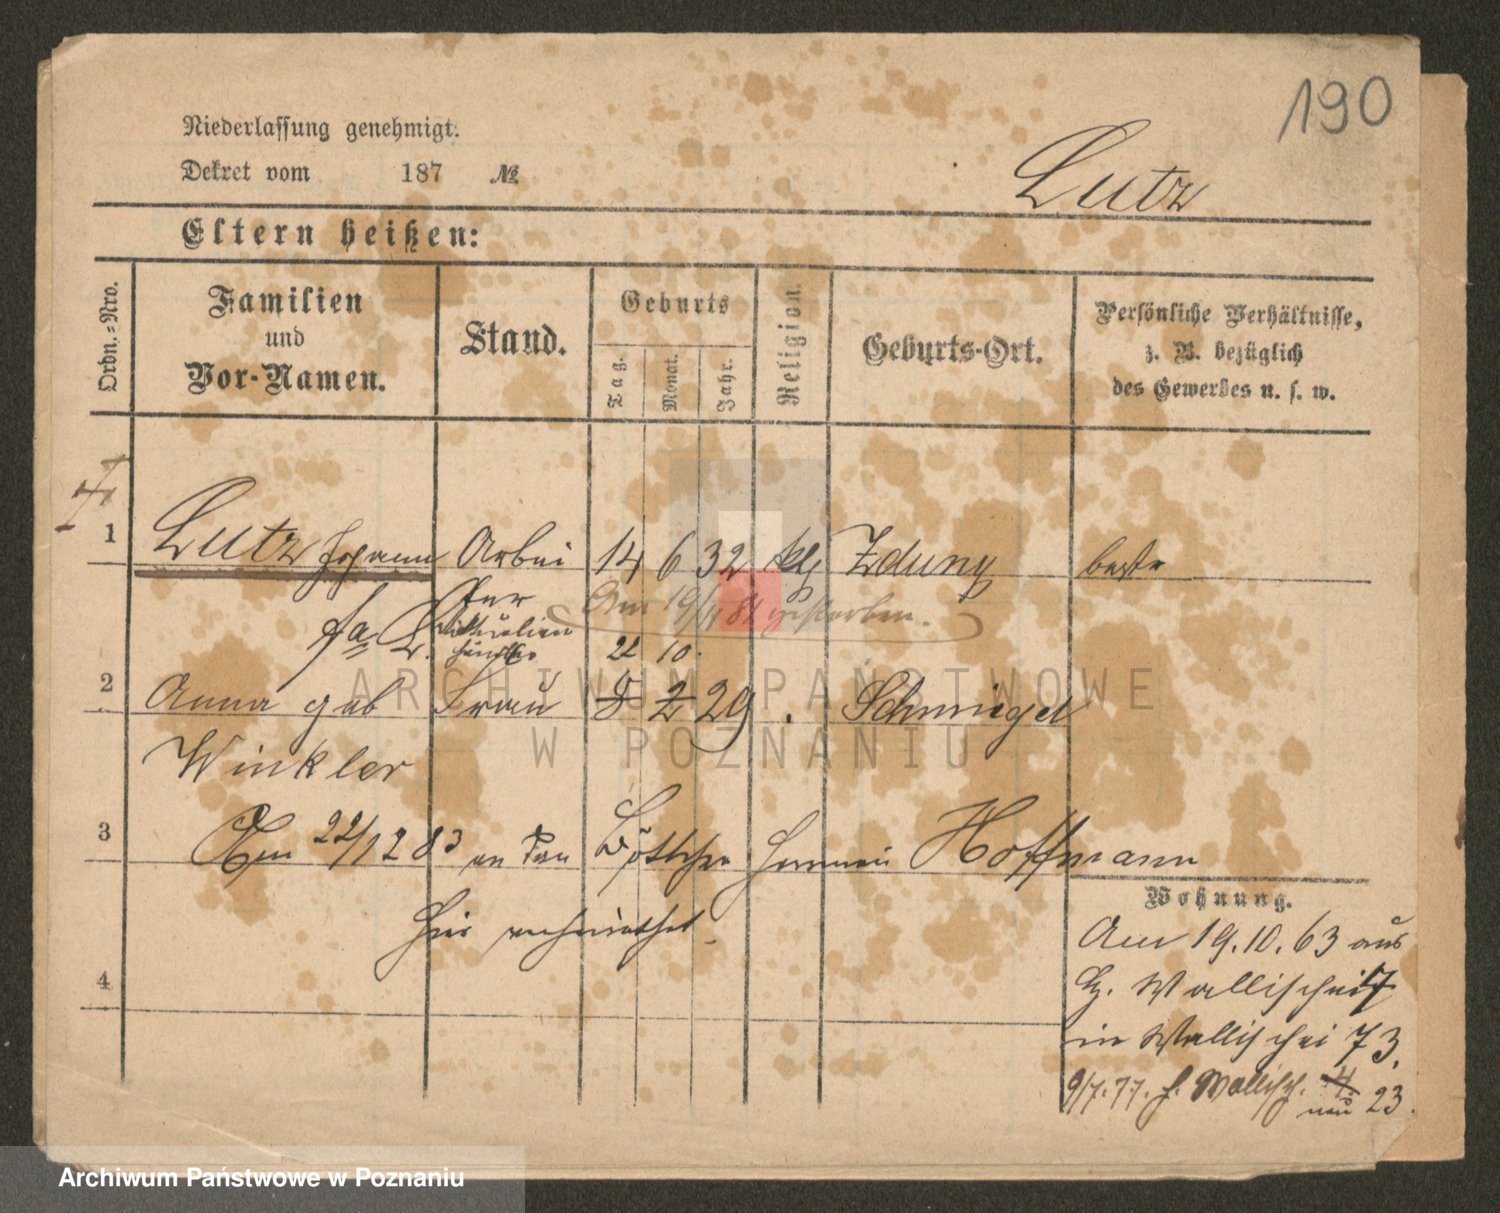 190
Niederlassung genehmigt.
Dekret vom 187 №
Lutz
Eltern heißen:
Ordn.-Nro.
Familien und Vor-Namen.
Stand.
Geburts
Tag.
Monat.
Jahr.
Religion.
Geburts-Ort.
Persönliche Verhältnisse,
z. B. bezüglich
des Gewerbes u. s. w.
1 Lutz Johann Arbei 14 6 32 Zduny
ter Am 19/ 84 gestorben.
Viktualien
händler 22 10.
2 Anna geb Frau 8 2 29 Schmiegel
Winkler
3 Am 22/12 83 an den Böttcher Herman Hoffmann
hier verheirathet.
4
Wohnung.
Am 19.10.63 aus
Wallischei 7
in Wallischei 73.
9/7.77. f. Wallisch. 4.
neu 23.
ARCHIWUM PAŃSTWOWE
W POZNANIU
Archiwum Państwowe w Poznaniu